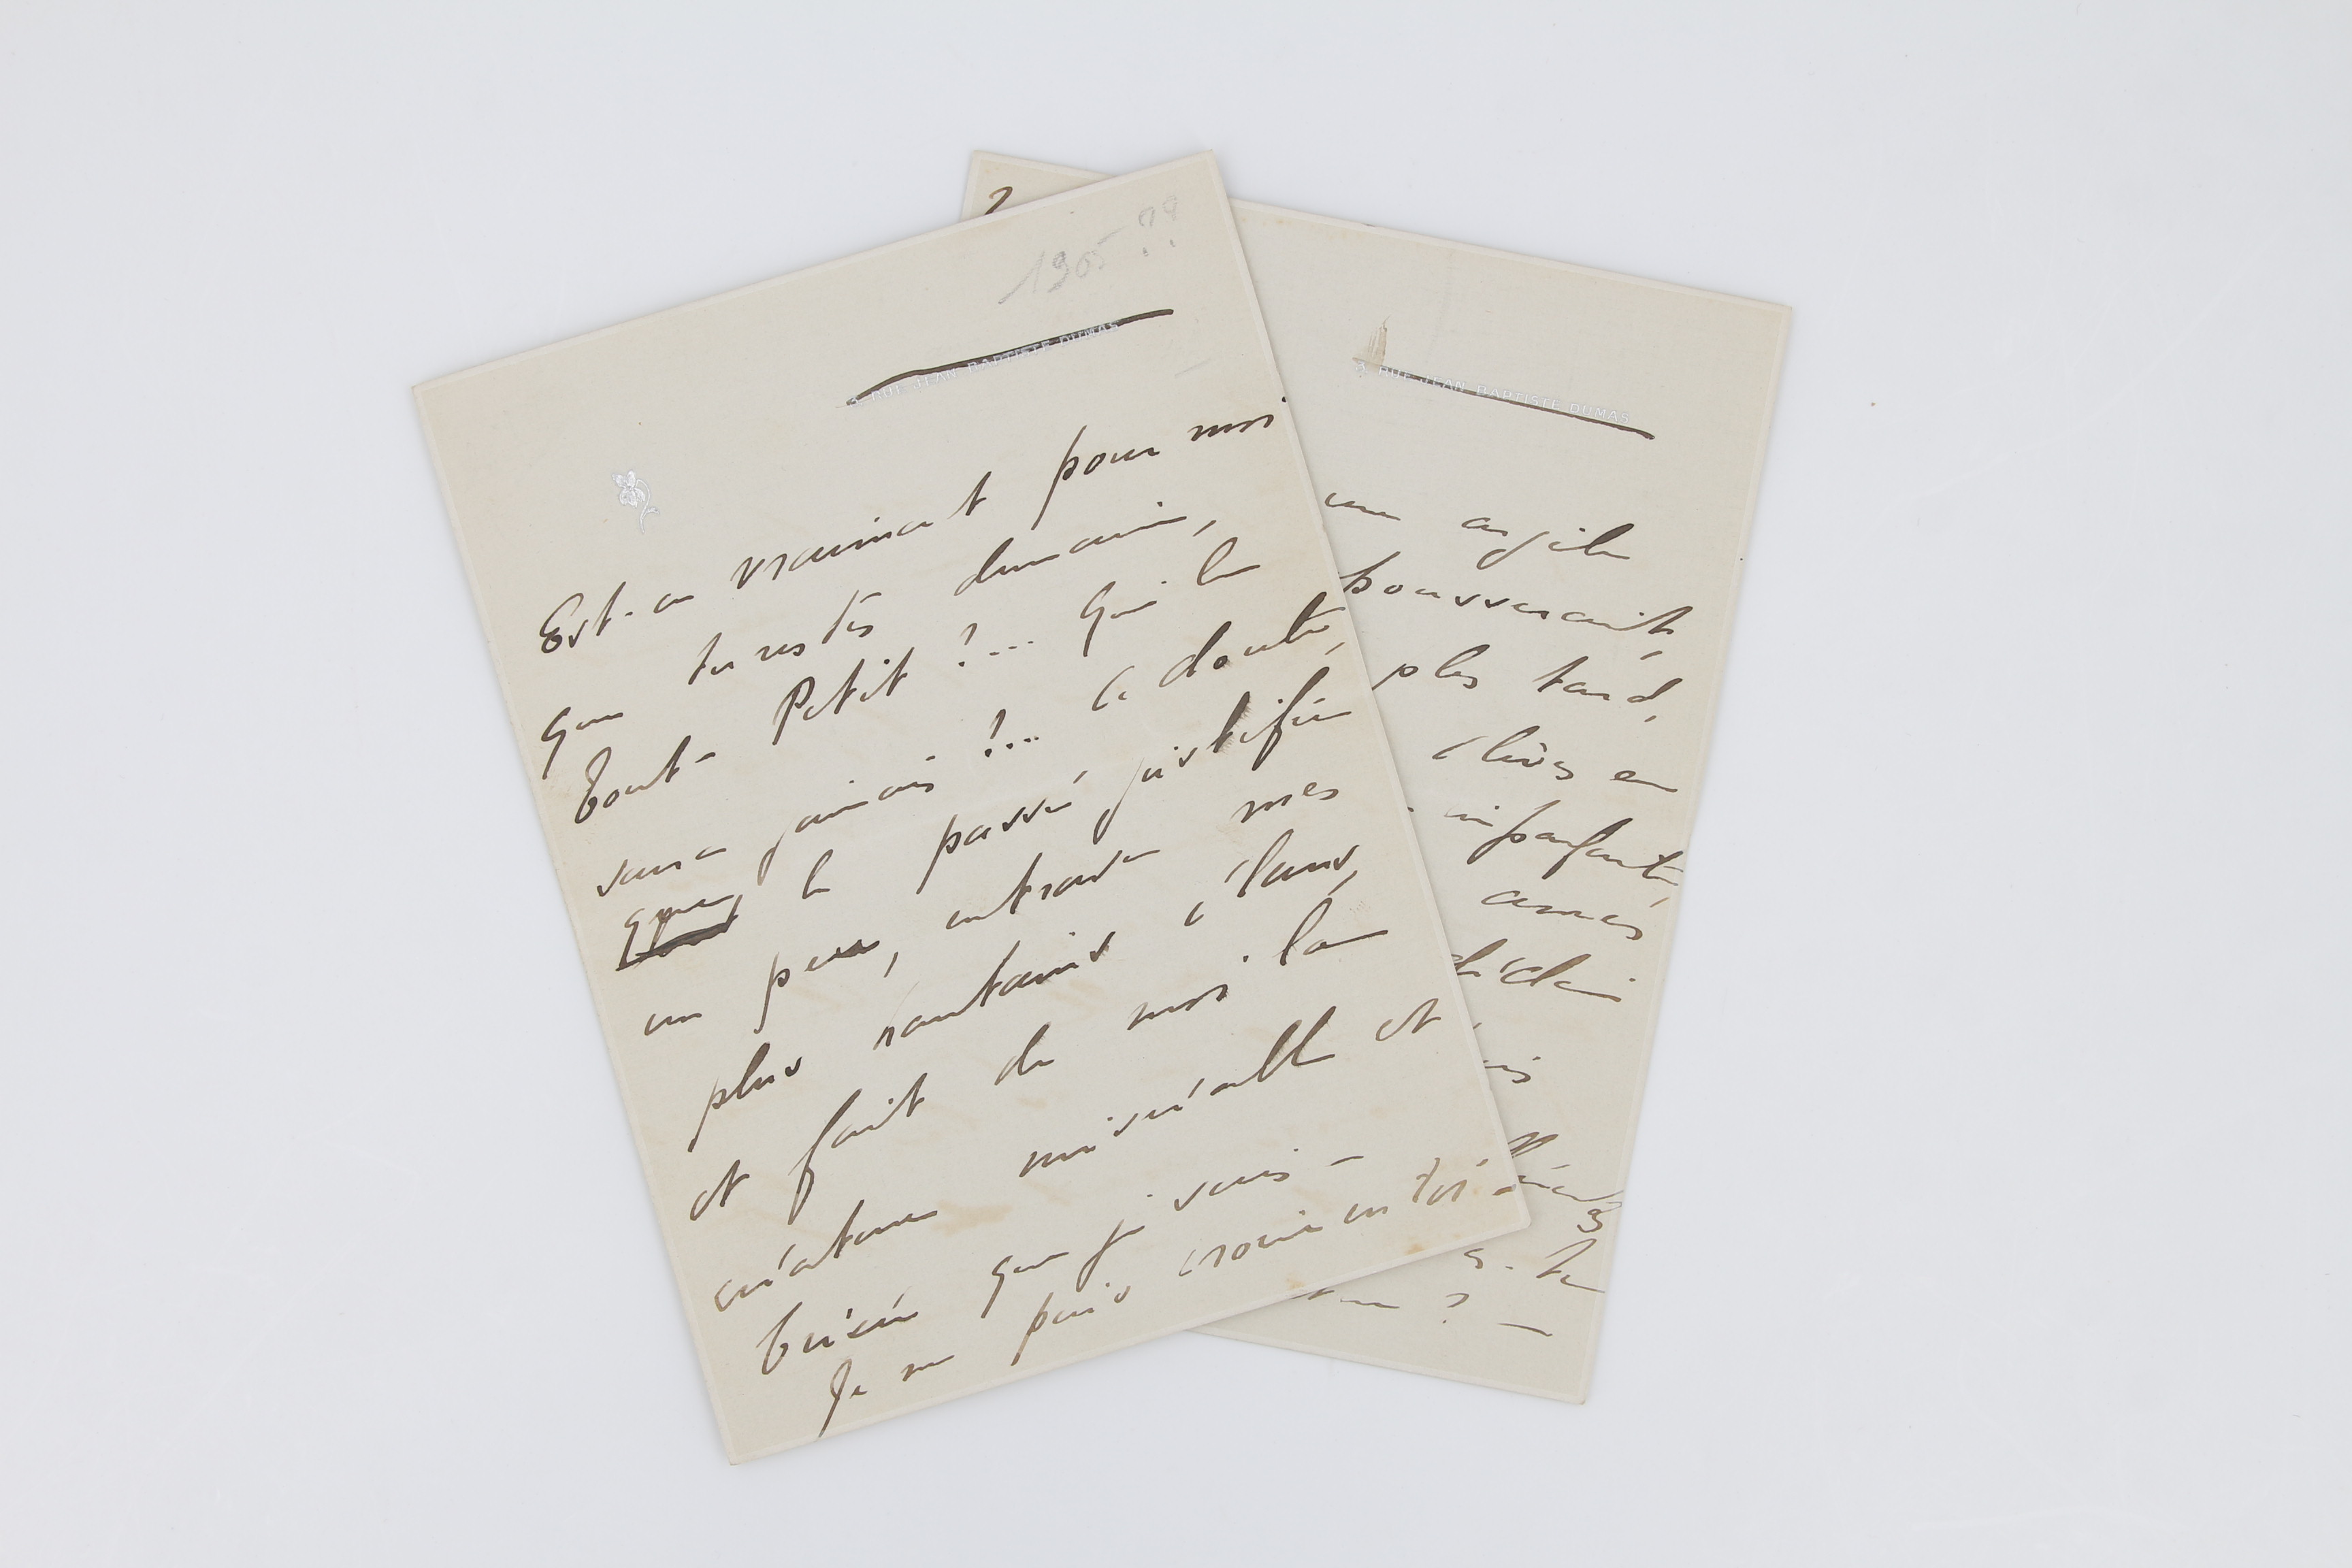 1905 ??
3 RUE JEAN BAPTISTE DUMAS
Est-ce vraiment pour moi
que tu restes demain,
Tout-Petit ?... Qui le
saura jamais ?... Ce doute,
que le passé justifie
un peu, entrave mes
plus hautains élans,
et fait de moi la
créature misérable et
brisée que je suis -
Je ne puis croire en toi
2
3 RUE JEAN BAPTISTE DUMAS
un asile
pousserait,
plus tard,
élèves en
imparfaite,
amès
dédai
is
as-tu
?